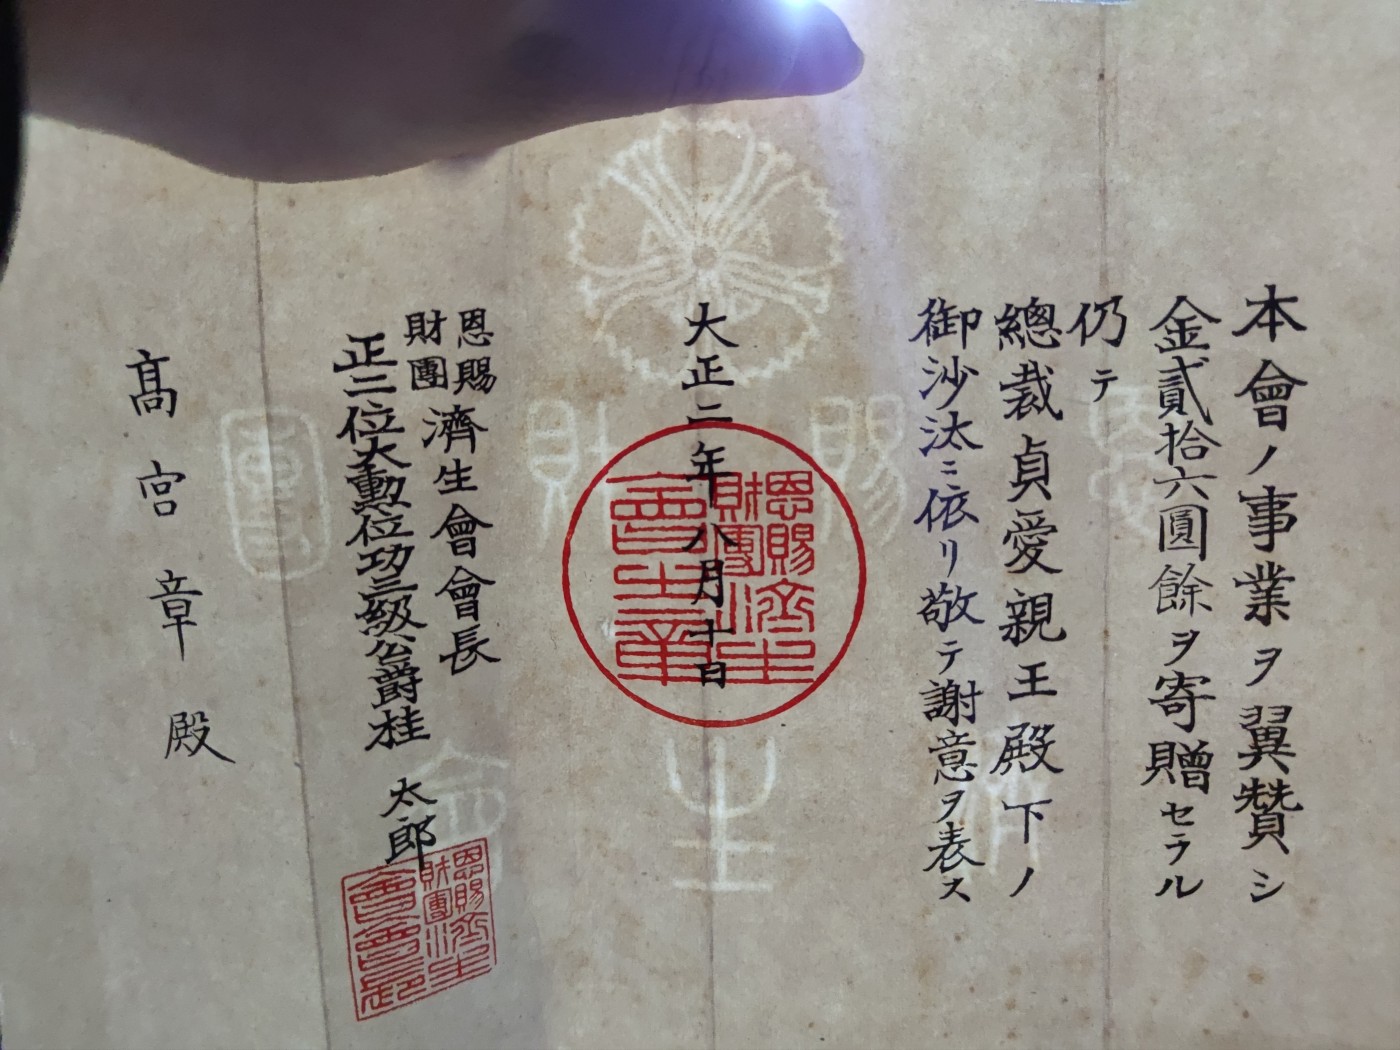 本會ノ事業ヲ翼賛シ
金貳拾六圓餘ヲ寄贈セラル
仍テ
總裁貞愛親王殿下ノ
御沙汰ニ依リ敬テ謝意ヲ表ス
大正二年八月十日
恩賜
財團
濟生會會長
正二位大勲位功三級公爵桂太郎
髙宮章殿
恩賜
財團濟生
會之章
恩賜濟生
財團
會會長
恩賜財團
濟生會